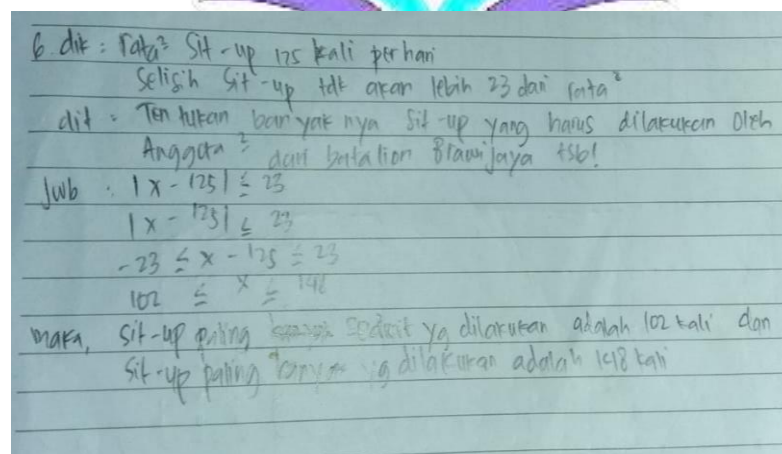 6. dik : rata² Sit-up 125 kali per hari
Selisih Sit-up tdk akan lebih 23 dari rata²
dit : Tentukan banyaknya Sit-up yang harus dilakukan oleh
Anggota² dari batalion Brawijaya tsb!
Jwb : |x - 125| ≤ 23
|x - 125| ≤ 23
-23 ≤ x - 125 ≤ 23
102 ≤ x ≤ 148
maka, Sit-up paling sedikit yg dilakukan adalah 102 kali dan
Sit-up paling banyak yg dilakukan adalah 148 kali